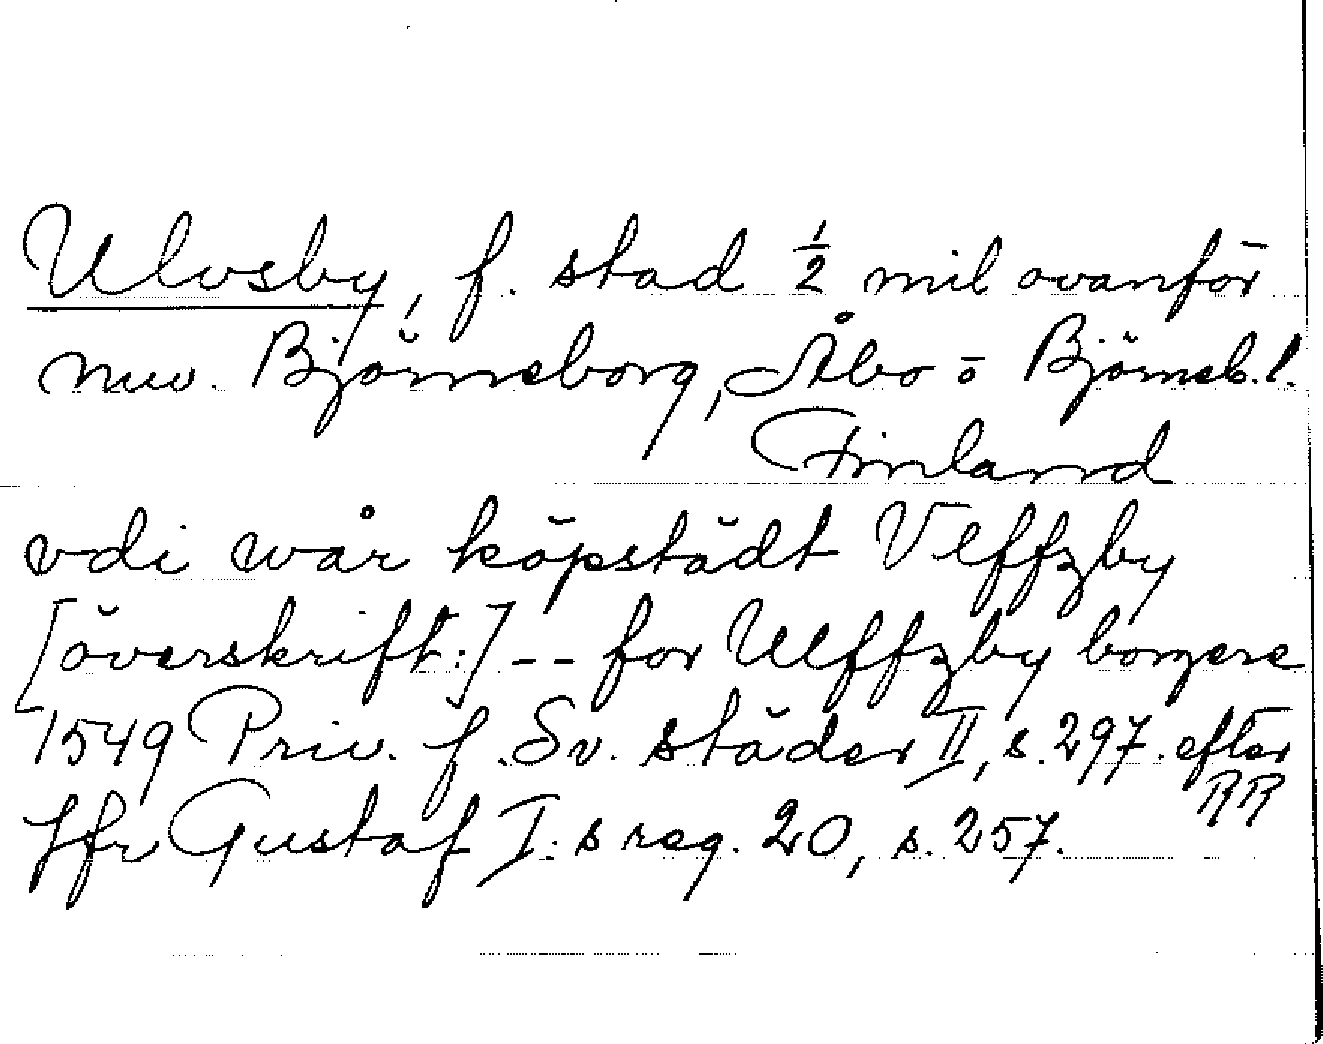 Ulvsby, f. stad 1/2 mil ovanför
nuv. Björneborg, Åbo o Björneb. l.
Finland
vdi wår köpstädt Vlffzby
[överskrift:] -- for Ulffzby borgere
1549 Priv. f. Sv. städer II, s. 297. efter
RR
Jfr Gustaf I:s reg. 20, s. 257.